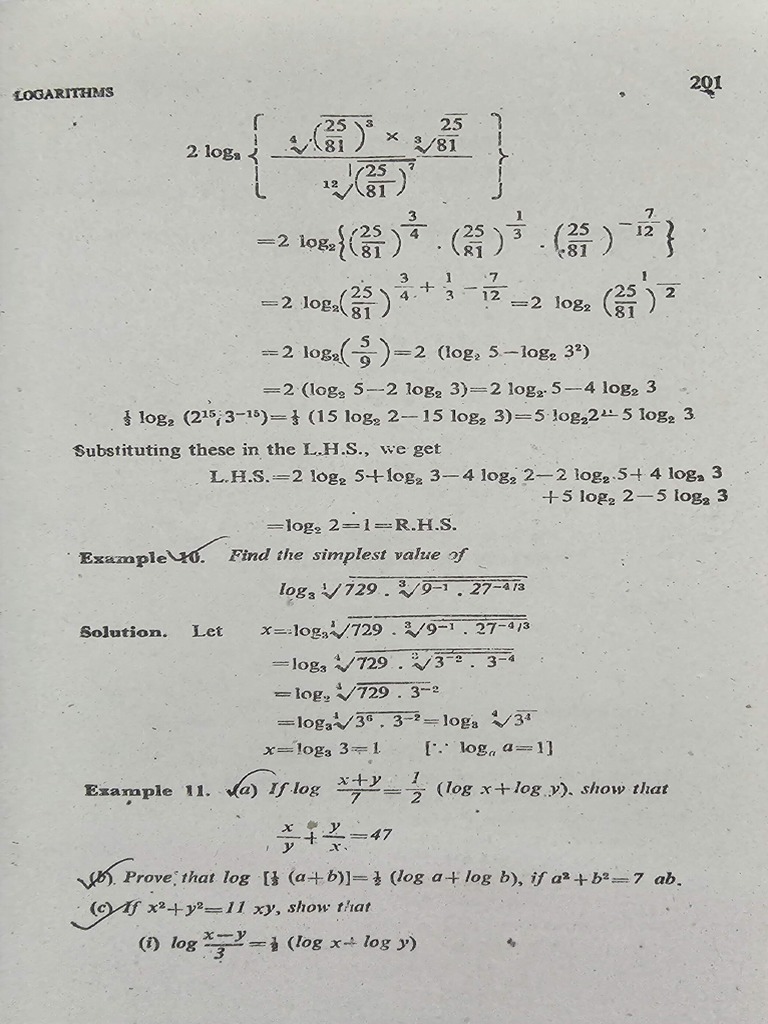 LOGARITHMS 201
2 log₂ { ⁴√(25/81)³ × ³√25/81 / ¹²√(25/81)⁷ }
=2 log₂{(25/81)^3/4 . (25/81)^1/3 . (25/81)^−7/12}
=2 log₂(25/81)^3/4+1/3−7/12=2 log₂ (25/81)^1/2
=2 log₂(5/9)=2 (log₂ 5−log₂ 3²)
=2 (log₂ 5−2 log₂ 3)=2 log₂ 5−4 log₂ 3
⅓ log₂ (2¹⁵, 3⁻¹⁵)=⅓ (15 log₂ 2−15 log₂ 3)=5 log₂2−5 log₂ 3
Substituting these in the L.H.S., we get
L.H.S.=2 log₂ 5+log₂ 3−4 log₂ 2−2 log₂ 5+4 log₂ 3
+5 log₂ 2−5 log₂ 3
=log₂ 2=1=R.H.S.
Example 10. Find the simplest value of
log₃ ⁴√729 . ³√9⁻¹ . 27⁻⁴/³
Solution. Let x=log₃ ⁴√729 . ³√9⁻¹ . 27⁻⁴/³
=log₃ ⁴√729 . ³√3⁻² . 3⁻⁴
=log₃ ⁴√729 . 3⁻²
=log₃ ⁴√3⁶ . 3⁻²=log₃ ⁴√3⁴
x=log₃ 3=1 [∵ logₐ a=1]
Example 11. (a) If log x+y/7=1/2 (log x+log y), show that
x/y+y/x=47
(b) Prove that log [⅓ (a+b)]=½ (log a+log b), if a²+b²=7 ab.
(c) If x²+y²=11 xy, show that
(i) log x−y/3=½ (log x+log y)